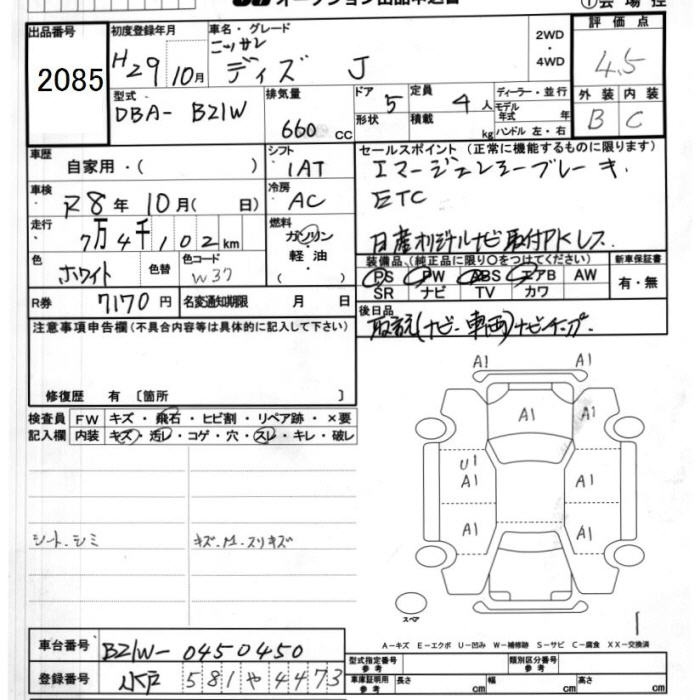 オークション出品申込書
①会場控
出品番号
2085
初度登録年月
H29 10月
車名・グレード
ニッサン
デイズ J
2WD
・
4WD
評価点
4.5
型式
DBA- B21W
排気量
660 CC
ドア 5
形状
定員 4 人
積載 kg
ディーラー・並行
モデル年式 年
ハンドル 左・右
外装 内装
B C
車歴
自家用・( )
シフト
1AT
セールスポイント (正常に機能するものに限ります)
エマージェンシーブレーキ
ETC
日産オリジナルナビ取付PKレス
車検
R8年 10月( 日)
冷房
AC
走行
7万4千102km
燃料
ガソリン
軽油
( )
色
ホワイト
色替
色コード
W37
装備品 (純正品に限り○をつけてください)
PS PW ABS エアB AW
SR ナビ TV カワ
新車保証書
有・無
R券 7170円
名変通知期限 月 日
後日品
取説(ナビ・車両)ナビチップ.
注意事項申告欄(不具合内容等は具体的に記入して下さい)
修復歴 有 〔箇所 〕
検査員
記入欄
FW キズ・飛石・ヒビ割・リペア跡・×要
内装 キズ・汚レ・コゲ・穴・スレ・キレ・破レ
シート.シミ
キズ.M.スリキズ
A1 A1
A1 A1
U1
A1 A1
A1 A1
スペア
A-キズ E-エクボ U-凹み W-補修跡 S-サビ C-腐食 XX-交換済
車台番号 B21W-0450450
登録番号 水戸 581や4473
型式指定番号
参考
類別区分番号
参考
車庫証明用
参考
長さ cm
幅 cm
高さ cm